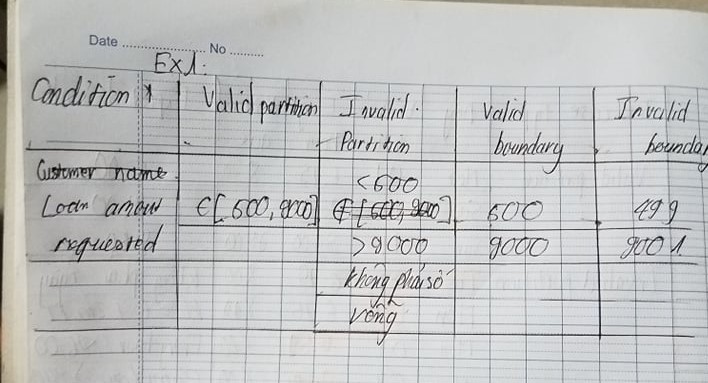 Date ........................ No ..........
Ex1:
Condition Valid partition Invalid Partition Valid boundary Invalid boundar
Customer name
Loan amount requested ∈[500, 9000] <500 500 499
>9000 9000 9001
không phải số
rỗng